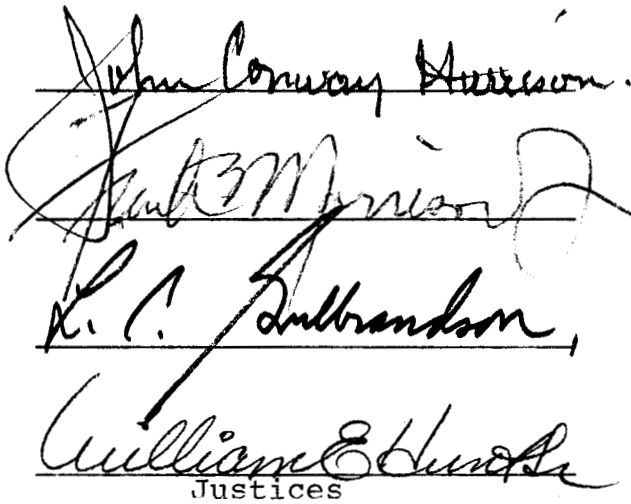 John Conway Harrison.
Frank B Morrison Jr
L. C. Gulbrandson,
William E Hunt Sr
Justices